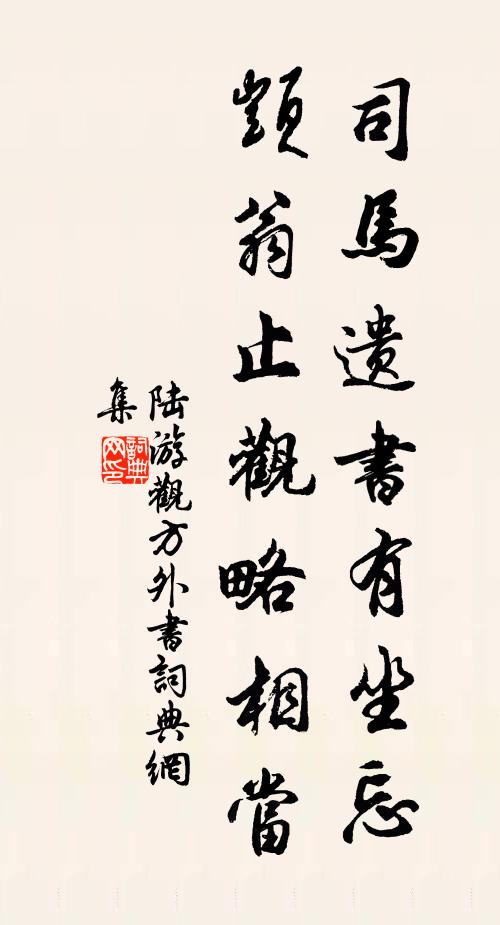 司馬遺書有坐忘
顗翁止觀略相當
陸游觀方外書詞典網
集
詞典
网印